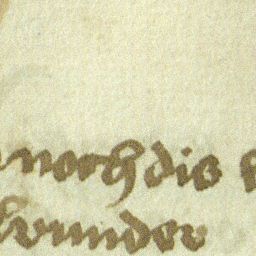 noch die
wunder